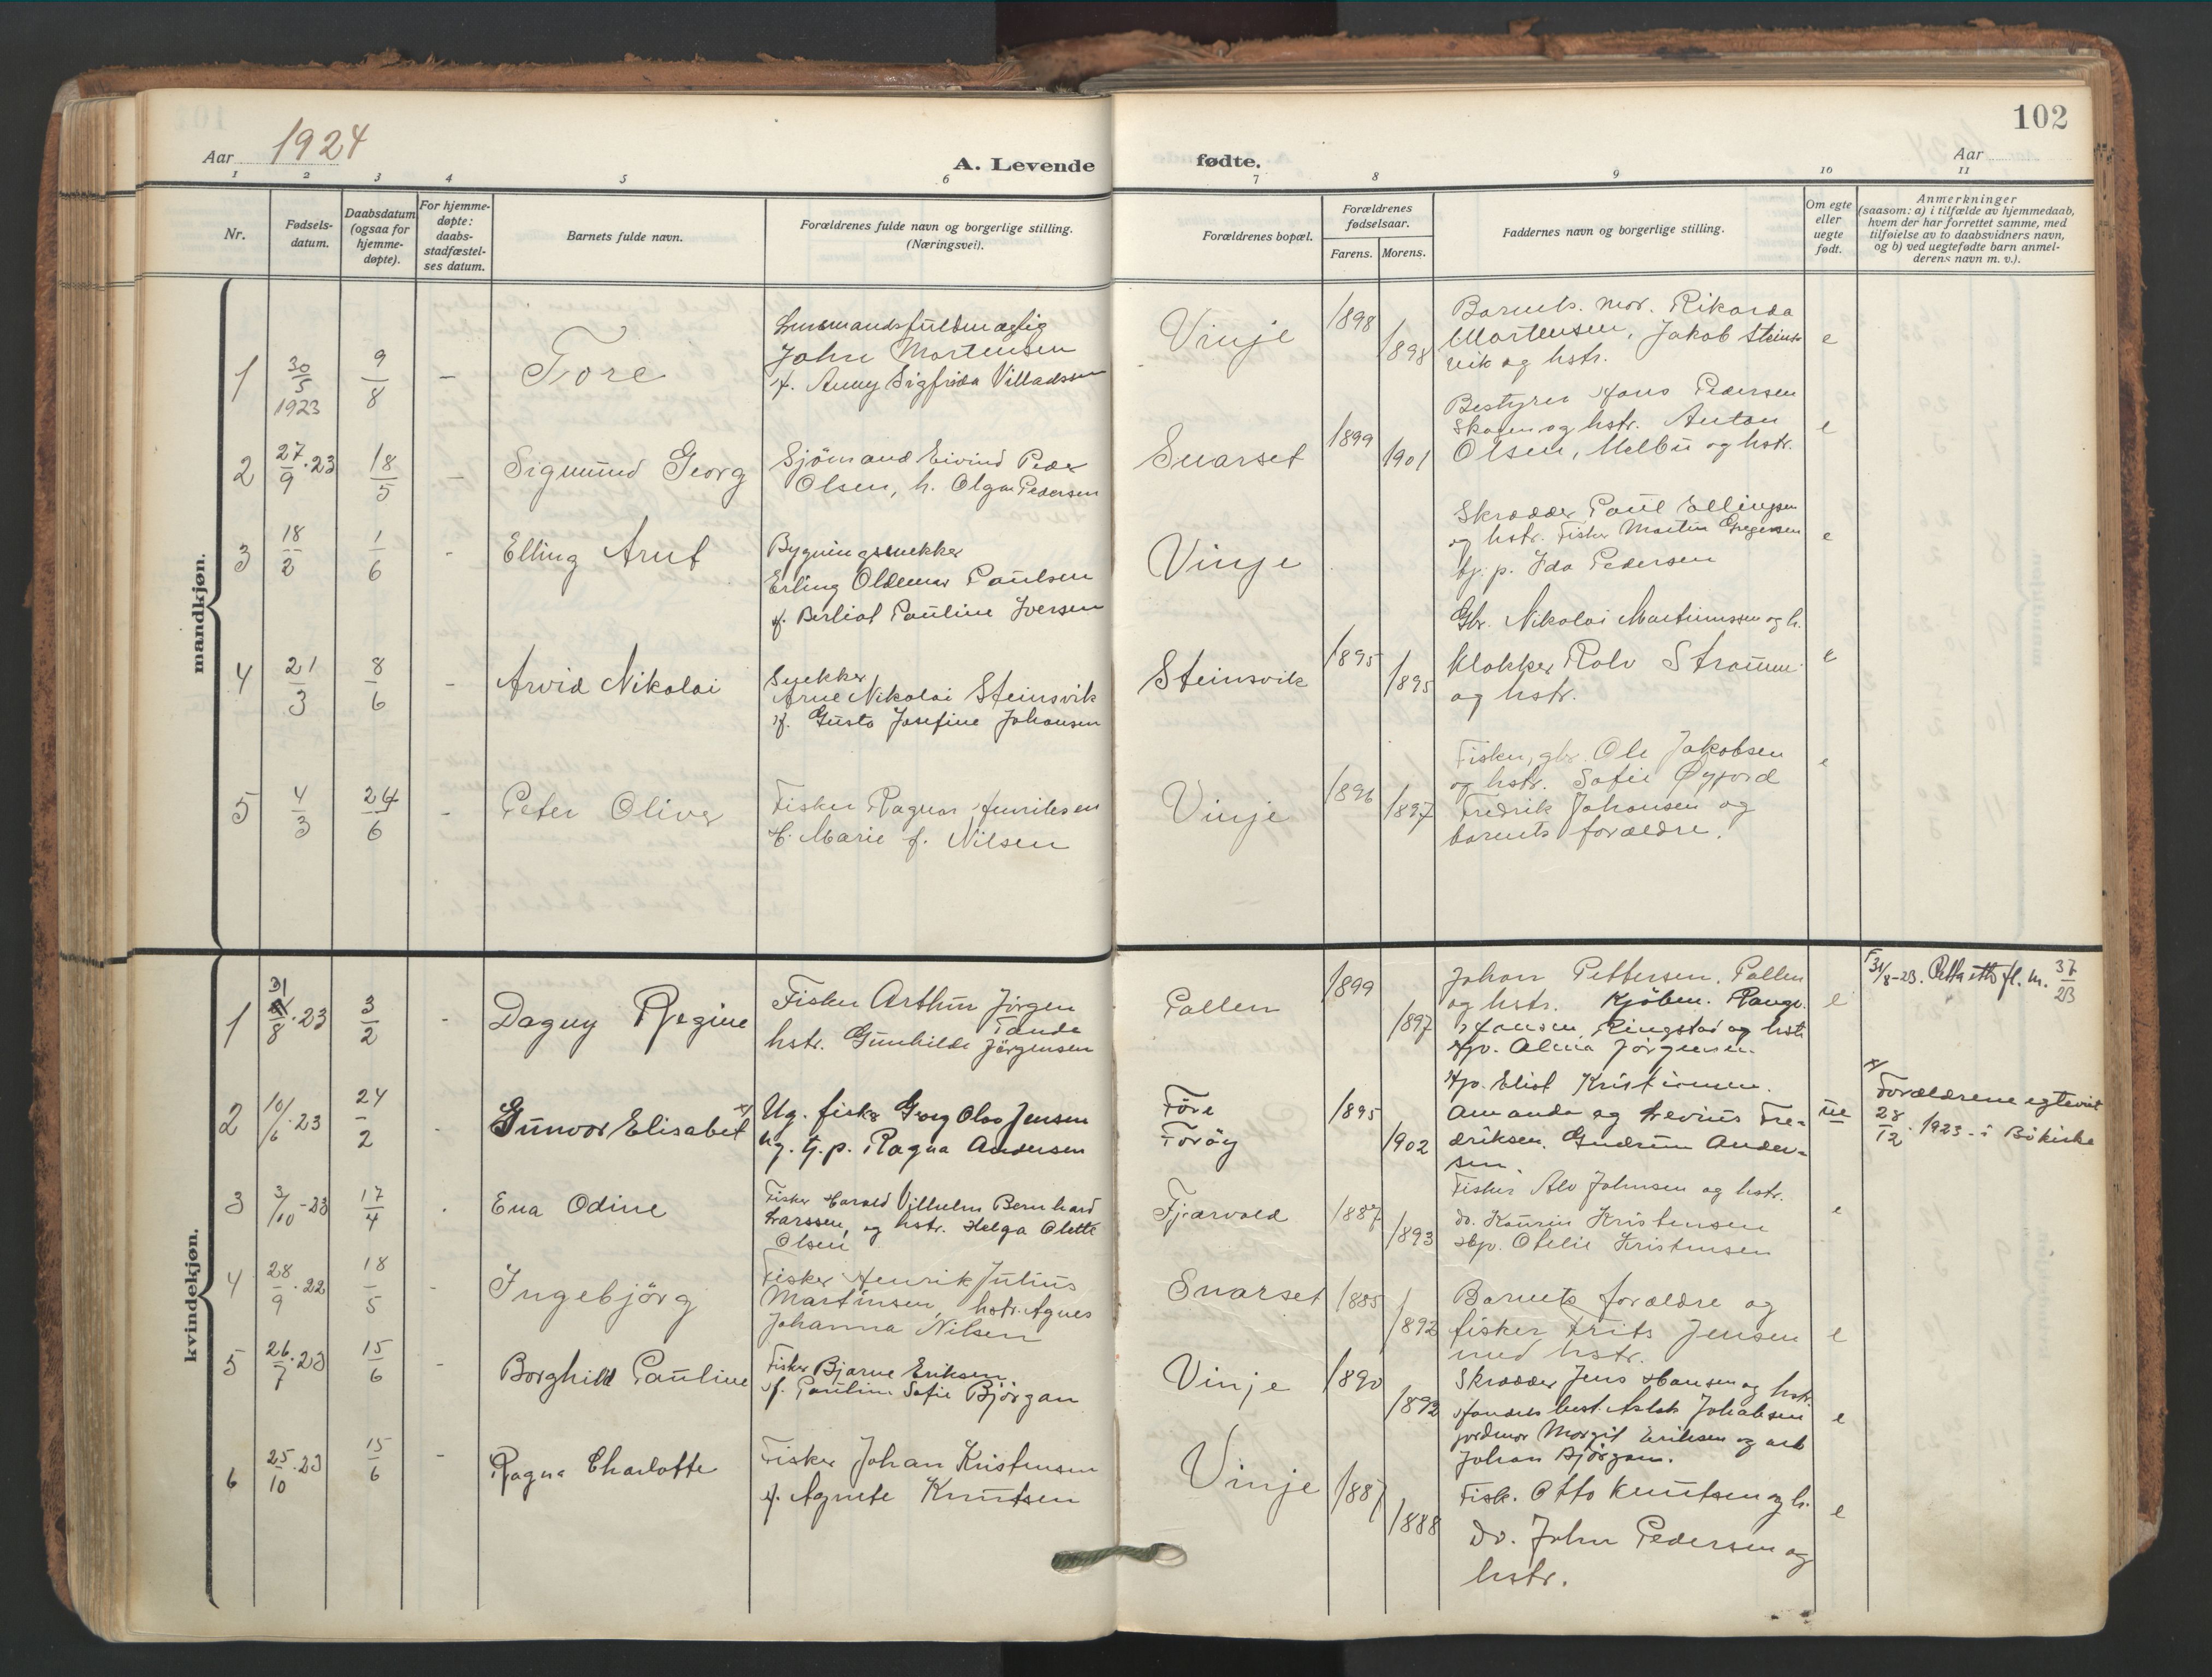 102
Aar 1924
A. Levende fødte.
Aar
1 2 3 4 5 6 7 8 9 10 11
Nr.
Fødsels-
datum.
Daabsdatum
(ogsaa for
hjemme-
døpte).
For hjemme-
døpte:
daabs-
stadfæstel-
ses datum.
Barnets fulde navn.
Forældrenes fulde navn og borgerlige stilling.
(Næringsvei).
Forældrenes bopæl.
Forældrenes
fødselsaar.
Farens. Morens.
Faddernes navn og borgerlige stilling.
Om egte
eller
uegte
født.
Anmerkninger
(saasom: a) i tilfælde av hjemmedaab,
hvem der har forrettet samme, med
tilføielse av to daabsvidners navn,
og b) ved uegtefødte barn anmel-
derens navn m. v.).
mandkjøn.
1 30/5 1923 9/8 — Tore
Lensmandsfuldmægtig
John Mortensen
f. Anny Sigfrida Villadsen
Vinje 1898 1898
Barnets mor. Rikarda
Mortensen, Jakob Steins-
vik og hstr.
e
2 27/9.23 18/5 — Sigmund Georg
Sjömand Eivind Peder
Olsen, h. Olga Pedersen
Snarset 1899 1901
Bestyrer Hans Pedersen
Skagen og hstr. Anton
Olsen, Melbu og hstr.
e
3 18/2 1/6 - Elling Arnt
Bygningssnekker
Erling Oldemar Paulsen
f. Berliot Pauline Iversen
Vinje
Skrædder Paul Ellingsen
og hstr. Fisker Martin Gregersen
tj. p. Ida Pedersen
e
4 21/3 8/6 - Arvid Nikolai
Snekker
Arne Nikolai Steinsvik
f. Gusta Josefine Johansen
Steinsvik 1895 1895
Gbr. Nikolai Martinussen og h.
Klokker Rolv Straume
og hstr.
e
5 4/3 24/6 - Peter Oliver
Fisker Ragnar Henriksen
h. Marie f. Nilsen
Vinje 1896 1897
Fisker, gbr. Ole Jakobsen
og hstr. Sofie Øyjord
Fredrik Johansen og
barnets forældre.
e
kvindekjøn.
1 31/8.23 3/2 - Dagny Regine
Fisker Arthur Jörgen
Tande
hstr. Gunhilde Jörgensen
Pallen 1899 1897
Johan Pettersen, Pallen
og hstr. Kjöbm. Rangv.
Hansen, Ringstad og hstr.
Hp. Alma Jörgensen.
e
31/8-23. fl. m. 37/23
2 10/6.23 24/2 - Gunvor Elisabet x)
Ug. fisker Georg Olav Jensen
Ug. tj. p. Ragna Andersen
Före
Foröy
1895 1902
Hp. Eliot Kristiansen.
Amanda og Levius Fre-
driksen. Gudrun Ander-
sen.
ue
x) Forældrene egteviet
28/12. 1923 - i Bö kirke
3 3/10-23 17/4 . Ena Odine
Fisker Harald Vilhelm Bernhard
Larssen, og hstr. Helga Olette
Olsen
Fjærvold 1887 1893
Fisker Alv Johnsen og hstr.
do. Kaurin Kristensen
Hp. Otelie Kristensen
e
4 28/9.22 18/5 - Ingebjörg
Fisker Henrik Julius
Martinsen, hstr. Agnes
Johanna Nilsen
Snarset 1885 1892
Barnets forældre og
fisker Frits Jensen
med hstr.
e
5 26/7.23 15/6 - Borghild Pauline
Fisker Bjarne Eriksen
f. Pauline Sofie Björgan
Vinje 1890 1892
Skrædder Jens Hansen og hstr.
Handelsbest. Aslak Johansen
jordmor Margit Eriksen og arb
Johan Björgan.
e
6 25/10.23 15/6 - Ragna Charlotte
Fisker Johan Kristensen
f. Agnete Knutsen
Vinje 1887 1888
Fisk. Otto Knutsen og h.
Do. John Pedersen og
hstr.
e